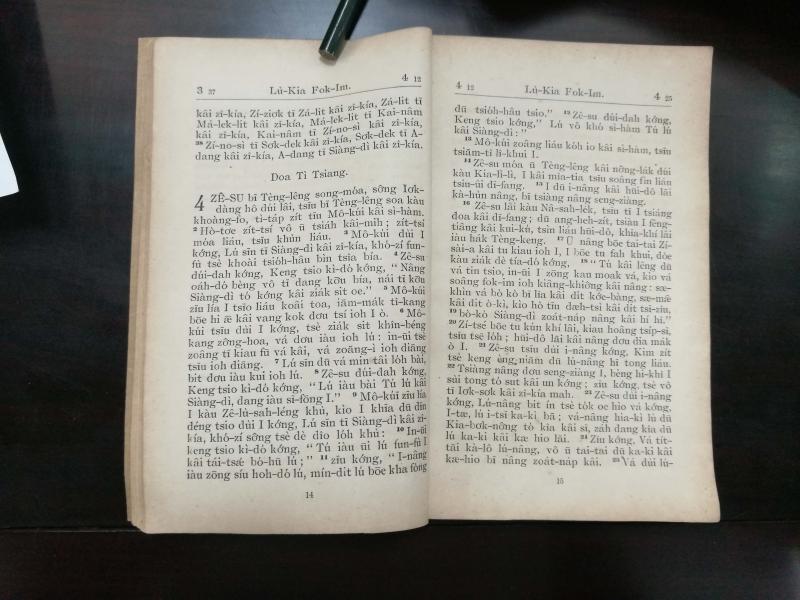 3 37 Lú-Kia Fok-Im. 4 12
kâi zí-kía, Zí-ziok tî Zá-lít kâi zí-kía, Zá-lít tî
Má-lek-lit kâi zí-kía, Má-lek-lit tî Kai-nâm
kâi zí-kía, Kai-nâm tî Zí-no-sì kâi zí-kía,
38 Zí-no-sì tî Sơk-dek kâi zí-kía, Sơk-dek tî A-
dang kâi zí-kía, A-dang tî Siàng-dì kâi zí-kía.
Doa Tì Tsiang.
4 ZÊ-SU bī Tèng-lêng song-móa, sông Iok-
dàng hô dúi lâi, tsīu bī Tèng-lêng soa kàu
khoàng-ío, tì-táp zít tīu Mô-kúi kâi sì-hàm.
2 Hò-tơe zít-tsí vô ū tsiáh kâi-mih; zít-tsí
móa liáu, tsīu khùn liáu. 3 Mô-kúi dúi I
kóng, Lú sīn tī Siàng-dì kâi zí-kía, khó-zí fun-
fù tsè khoài tsióh-hâu bìn tsia bía. 4 Zê-su
dúi-dah kóng, Keng tsio kì-dó kóng, “ Nâng
oáh-dó bèng vô tī dang kữu bía, nái tī kữu
Siàng-dì tó kóng kâi ziák sìt oe.” 5 Mô-kúi
zīu lía I tsīo liáu koâi toa, iām-mák tì-kang
bōe hi ǽ kâi vang kok dơu tsí ioh I ò. 6 Mô-
kúi tsīu dúi I kóng, tsè ziák sit khìn-béng
kang zông-hoa, vá dơu iàu ioh lú: in-ūi tsè
zoâng tī kiau fū vá kâi, vá zoāng-ì ioh diāng
tsīu ioh diāng. 7 Lú sīn dū vá mín tâi lóh bài,
bit dơu iàu kui ioh lú. 8 Zê-su dúi-dah kóng,
Keng tsio kì-dó kóng, “ Lú iàu bài Tú lú kâi
Siàng-dì, dang iàu sì-fông I.” 9 Mô-kúi zīu lía
I kàu Zê-lù-sah-léng khù, kìo I khīa dū dīn
déng tsio dúi I kóng, Lú sīn tī Siàng-dì kâi zí-
kía, khó-zí sông tsè dè dìo lóh khù: 10 In-ūi
keng tsio kì-dó kóng, “ Tú iàu ūi lú fun-fù I
kâi tái-tsǽ bó-hū lú;” 11 zīu kóng, “ I-nâng
iàu zōng síu hoh-dó lú, mín-dit lú bōe kha fòng
14
4 12 Lú-Kia Fok-Im. 4 25
dū tsióh-hâu tsio.” 12 Zê-su dúi-dah kóng,
Keng tsio kóng,” Lú vô khó sì-hàm Tú lú
kâi Siàng-dì: ”
13 Mô-kúi zoâng liáu kóh io kâi sì-hàm, tsīu
tsiām-tî lí-khui I.
14 Zê-su móa ū Tèng-lêng kâi nông-lák dúi
kàu Kia-lì-lì, I kâi mia-tia tsīu soâng fìn liáu
tsiu-ūi dī-fang. 15 I dū i-nâng kâi hūi-dô lâi
kà-hùn nâng, bī tsiàng nâng seng-ziang.
16 Zê-su lâi kàu Nâ-sah-lék, tsīu tī I tsiáng
doa kâi dī-fang; dū ang-heh-zít, tsīu I féng-
tiāng kâi kui-kú, tsìn liáu hūi-dô, khia-khí lâi
iàu hák Tèng-keng. 17 Ū nâng bōe tai-tai Zí-
sài-a kâi tu kiau ioh I, I bōe tu fah khui, dóe
kàu ziák dè tía-dó kóng, 18 “ Tú kâi lêng dū
vá tìn tsio, in-ūi I zōng kau moak vá, kìo vá
soâng fok-im ioh kiâng-khiông kâi nâng: sæ-
khìn vá bò kò bí lía kâi dit kǿe-bàng, sæ-mǽ
kâi dit ò-ki, kìo hò tīn dæh-tsi kâi dit tsì-ziu,
19 bò-kò Siàng-dì zoát-náp nâng kâi hí hi.”
20 Zí-tsé bōe tu kùn khí lâi, kiau hoâng tsíp-si,
tsīu tsē lóh; hūi-dô lâi kâi nâng dơu dia mák
ò I. 21 Zê-su tsīu dúi i-nâng kóng, Kim zít
tsè keng èng-niām dū lú-nâng hi tong liáu.
22 Tsiàng nâng dơu seng-ziàng I, bèng hi-khî I
sùi tong tó sut kâi un kóng; zīu kóng, tsè vô
tī Iok-sok kâi zí-kía mah. 23 Zê-su dúi i-nâng
kóng, Lú-nâng bit ín tsè tók oe hìo vá kóng,
I-tæ, lú i-tsí ka-kì bā; vá-nâng hia-kì lú dū
Kia-bok-nông tò kìa kâi si, zàh dang kìa dū
lú ka-kì kâi kæ hìo lâi. 24 Zīu kóng, Vá tít-
tāi kà-lô lú-nâng, vô ū tai-tai dū ka-kì kâi
kæ-hìo bī nâng zoát-náp kâi. 25 Vá dúi lú-
15